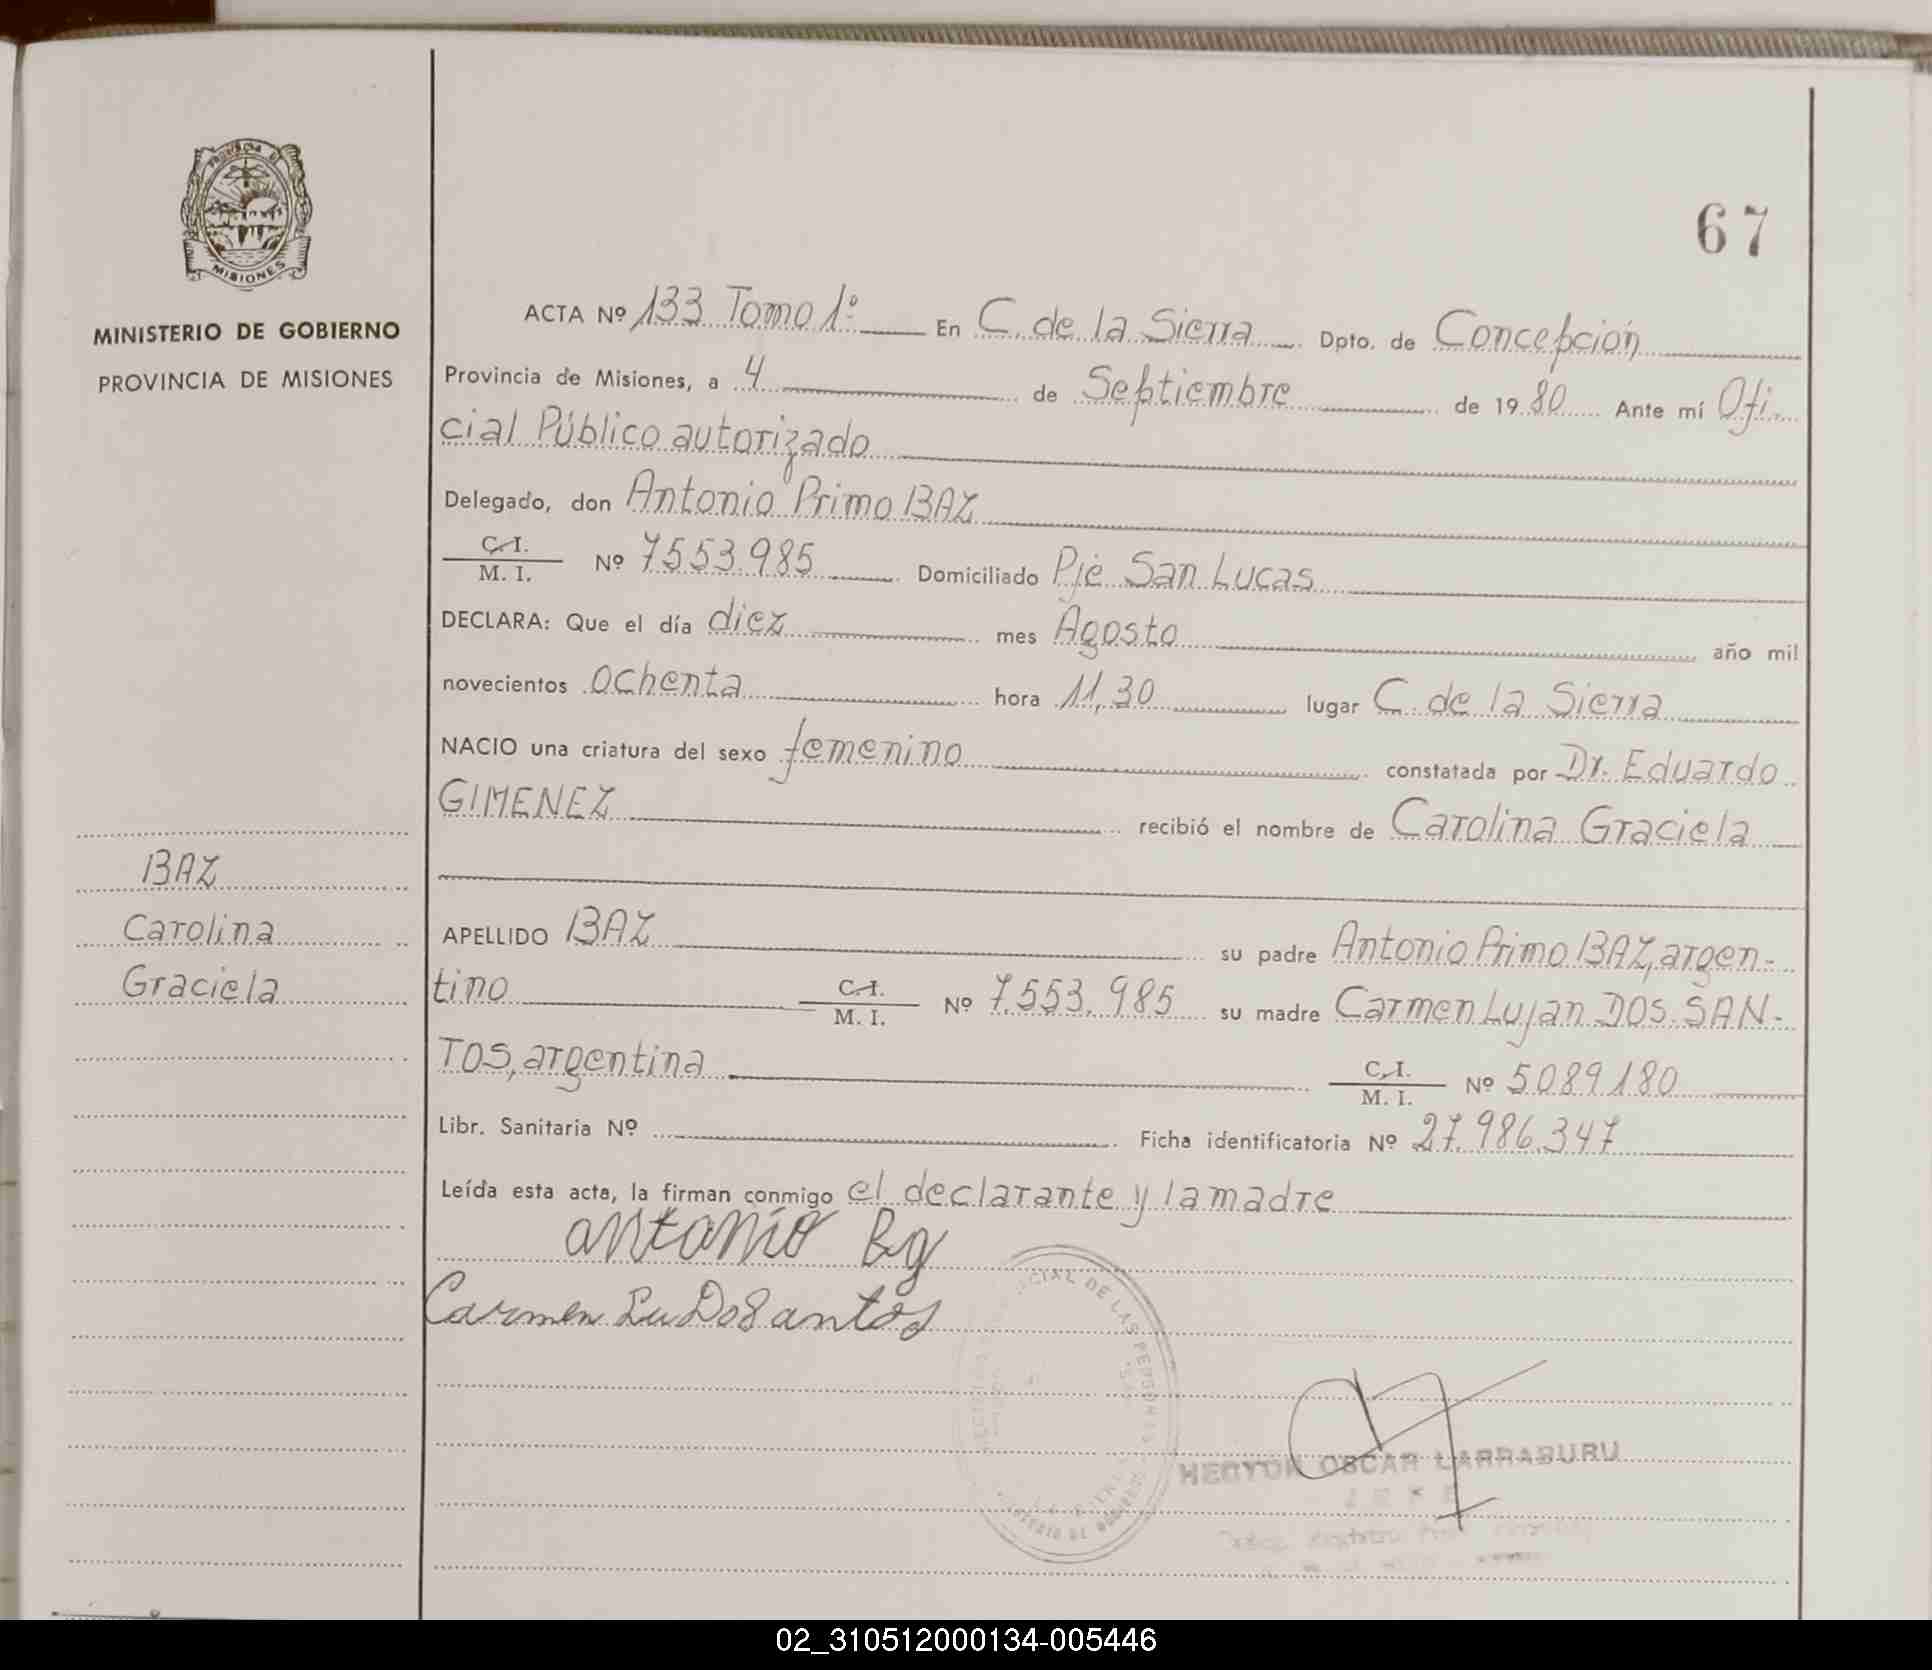 PROVINCIA DE
MISIONES
MINISTERIO DE GOBIERNO
PROVINCIA DE MISIONES
67
ACTA Nº 133 Tomo 1º En C. de la Sierra Dpto. de Concepción
Provincia de Misiones, a 4 de Septiembre de 1980 Ante mí Ofi-
cial Público autorizado
Delegado, don Antonio Primo BAZ
C.I.
M. I. Nº 7553.985 Domiciliado Pje San Lucas
DECLARA: Que el día diez mes Agosto año mil
novecientos ochenta hora 11,30 lugar C. de la Sierra
NACIO una criatura del sexo femenino constatada por Dr. Eduardo
GIMENEZ recibió el nombre de Carolina Graciela
BAZ
Carolina
Graciela
APELLIDO BAZ su padre Antonio Primo BAZ, argen-
tino C.I.
M. I. Nº 7.553.985 su madre Carmen Lujan DOS SAN-
TOS, argentina C.I.
M. I. Nº 5089180
Libr. Sanitaria Nº Ficha identificatoria Nº 27.986.347
Leída esta acta, la firman conmigo el declarante y la madre
antonio
Carmen Lu DoSantos
CIAL DE LAS PERSONAS
OSCAR LARRABURU
02_310512000134-005446